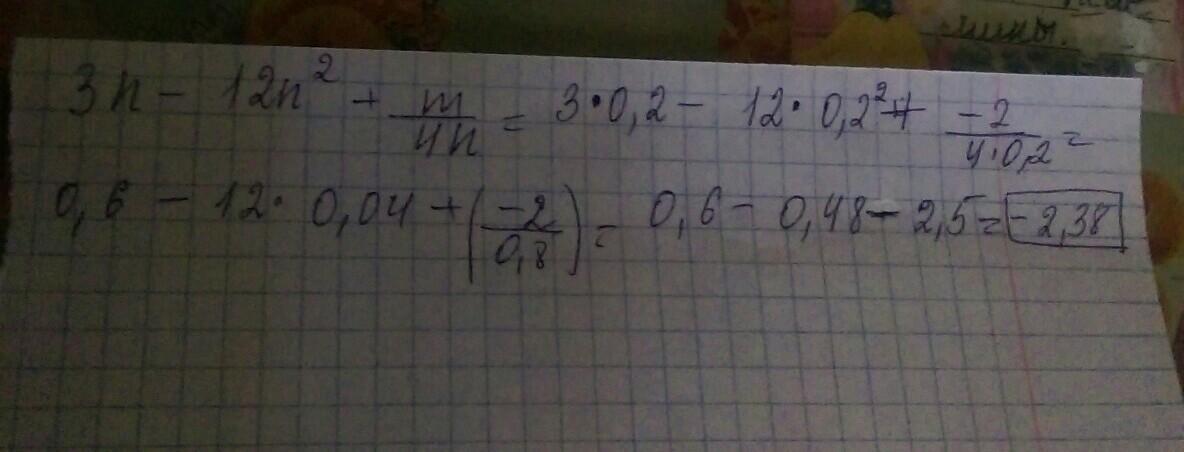 шины.
3n - 12n² + m/4n = 3·0,2 - 12·0,2² + -2/4·0,2 =
0,6 - 12·0,04 + (-2/0,8) = 0,6 - 0,48 - 2,5 = -2,38